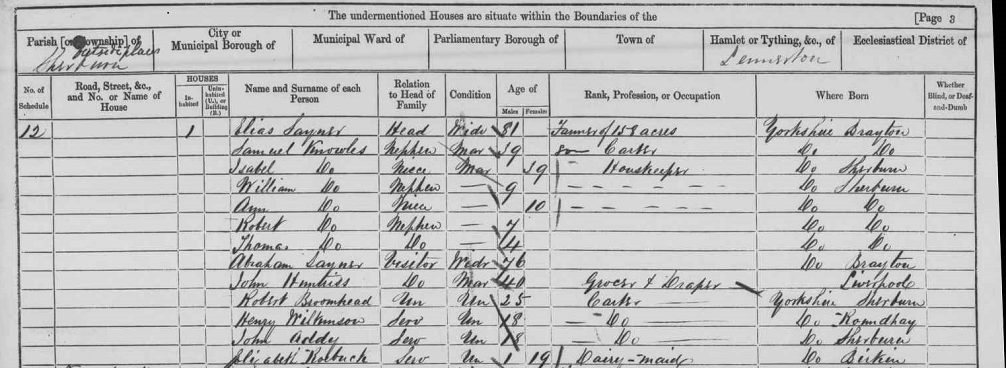 The undermentioned Houses are situate within the Boundaries of the
[Page 3
Parish [or Township] of
City or Municipal Borough of
Municipal Ward of
Parliamentary Borough of
Town of
Hamlet or Tything, &c., of
Ecclesiastical District of
Sherburn
Lennerton
No. of Schedule
Road, Street, &c., and No. or Name of House
HOUSES
In-habited
Unin-habited (U.), or Building (B.)
Name and Surname of each Person
Relation to Head of Family
Condition
Age of
Males
Females
Rank, Profession, or Occupation
Where Born
Whether Blind, or Deaf-and-Dumb
12 1 Elias Sayner Head Widr 81 Farmer of 158 acres Yorkshire Brayton
Samuel Knowles Nephew Mar 19 Carter Do Do
Isabel Do Niece Mar 19 Housekeeper Do Sherburn
William Do Nephew — 9 Do Sherburn
Ann Do Niece — 10 Do Do
Robert Do Nephew — 7 Do Do
Thomas Do Do — 4 Do Do
Abraham Sayner Visitor Widr 76 Do Brayton
John Do Mar 40 Grocer & Draper Liverpool
Robert Broomhead Un Un 25 Carter Yorkshire Sherburn
Henry Wilkinson Serv Un 18 Do Do Roundhay
John Serv Un 18 Do Do Sherburn
Elizabeth Roebuck Serv Un 19 Dairy-maid Do Birkin